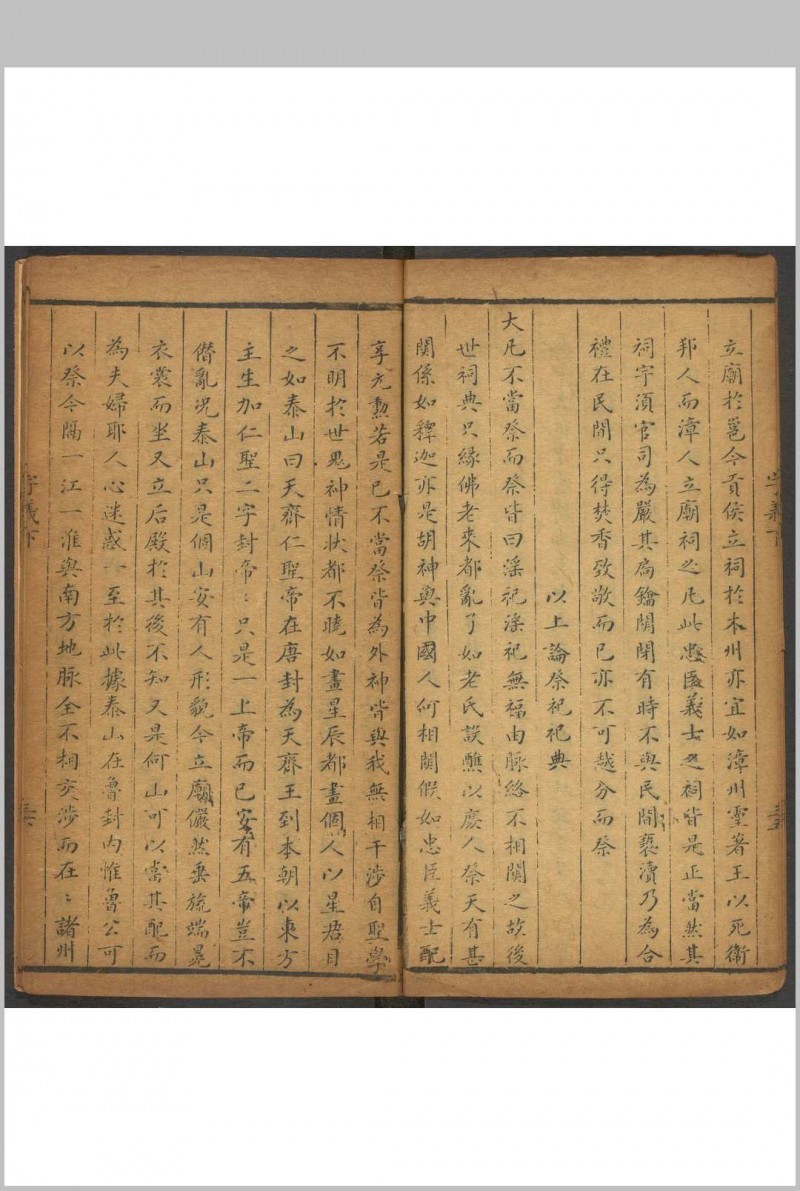 立廟於邕今貢侯立祠於本州亦宜如漳州靈著王以死衛
邦人而漳人立廟祠之凡此忠臣義士之祠皆是正當然其
祠宇須官司為嚴其扃鑰開閉有時不與民間褻瀆乃為合
禮在民間只得焚香致敬而已亦不可越分而祭
以上論祭祀祀典
大凡不當祭而祭皆曰淫祀淫祀無福由脉絡不相關之故後
世祠典只緣佛老來都亂了如老氏設醮以庶人祭天有甚
關係如釋迦亦是胡神與中國人何相關假如忠臣義士配
享元勳若是已不當祭皆為外神皆與我無相干涉自聖學
不明於世鬼神情狀都不曉如畫星辰都畫個人以星君目
之如泰山曰天齊仁聖帝在唐封為天齊王到本朝以東方
主生加仁聖二字封帝〻只是一上帝而已安有五帝豈不
僭亂况泰山只是個山安有人形貌今立廟儼然垂旒端冕
衣裳而坐又立后殿於其後不知又是何山可以當其配而
為夫婦耶人心迷惑一至於此據泰山在魯封內惟魯公可
以祭今隔一江一淮與南方地脉全不相交涉而在〻諸州
字義下
字義下